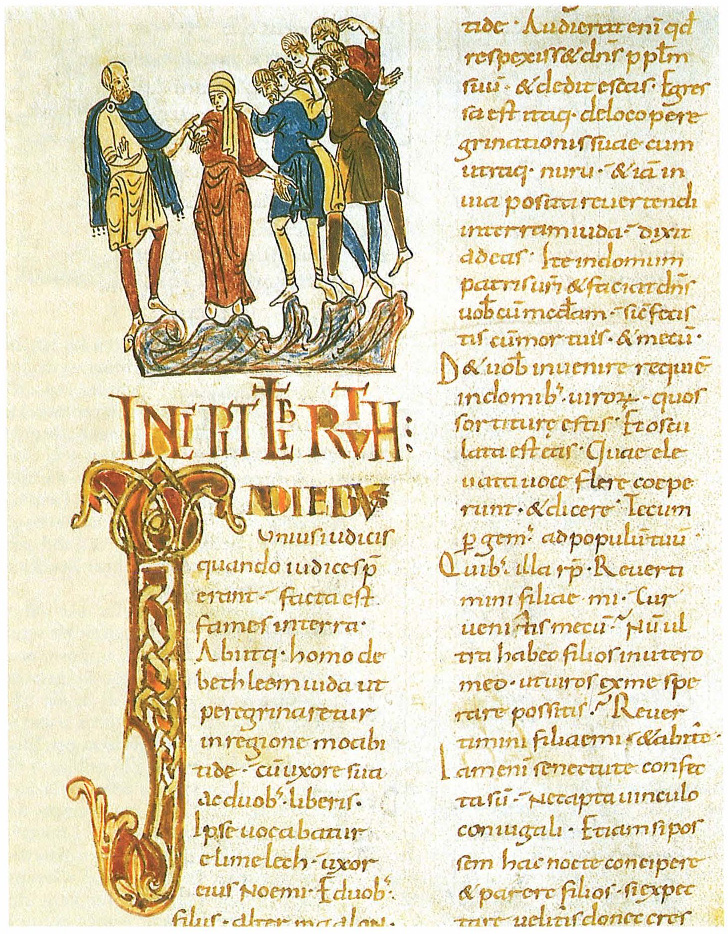 INCIPIT LIBER RUTH:
IN DIEBUS
Unius iudicis
quando iudices p̄
erant · facta est
fames in terra ·
Abiitq · homo de
bethleem iuda ut
peregrinaretur
in regione moabi
tide · cū uxore sua
ac duob᾿ · liberis ·
Ipse uocabatur
elimelech · uxor
eius Noemi · E duob᾿ ·
filiis · alter maalon ·
tide · Audierat enī qd̄
respexiss& dn̄s pplm̄
suū · & dedit escas · Egres
sa est itaq · de loco pere
grinationis suae cum
utraq · nuru · & iā in
uia posita reuertendi
in terram iuda · dixit
ad eas · Ite in domum
matris urī̄ & faciat dn̄s
uob̄cū mc̄dam · sic̄ fecis
tis cū mortuis · & mecū ·
D& uob̄ inuenire requiē
in domib᾿ · uiroꝝ · quos
sortiturę estis · Et oscu
lata est eas · Quae ele
uata uoce flere coepe
runt · & dicere · Tecum
ꝑgem᾿ · ad populū tuū ·
Quib᾿ · illa rp̄ · Reuerti
mini filiae mi · Cur
uenistis mecū · Nū ul
tra habeo filios in utero
meo · ut uiros ex me spe
rare possitis · Reuer
timini filiae mi & abite ·
Iam enī senectute confec
ta sū · nec apta uinculo
coniugali · Etiam si pos
sem hac nocte concipere
& parere filios · si expec
tare uelitis donec cres